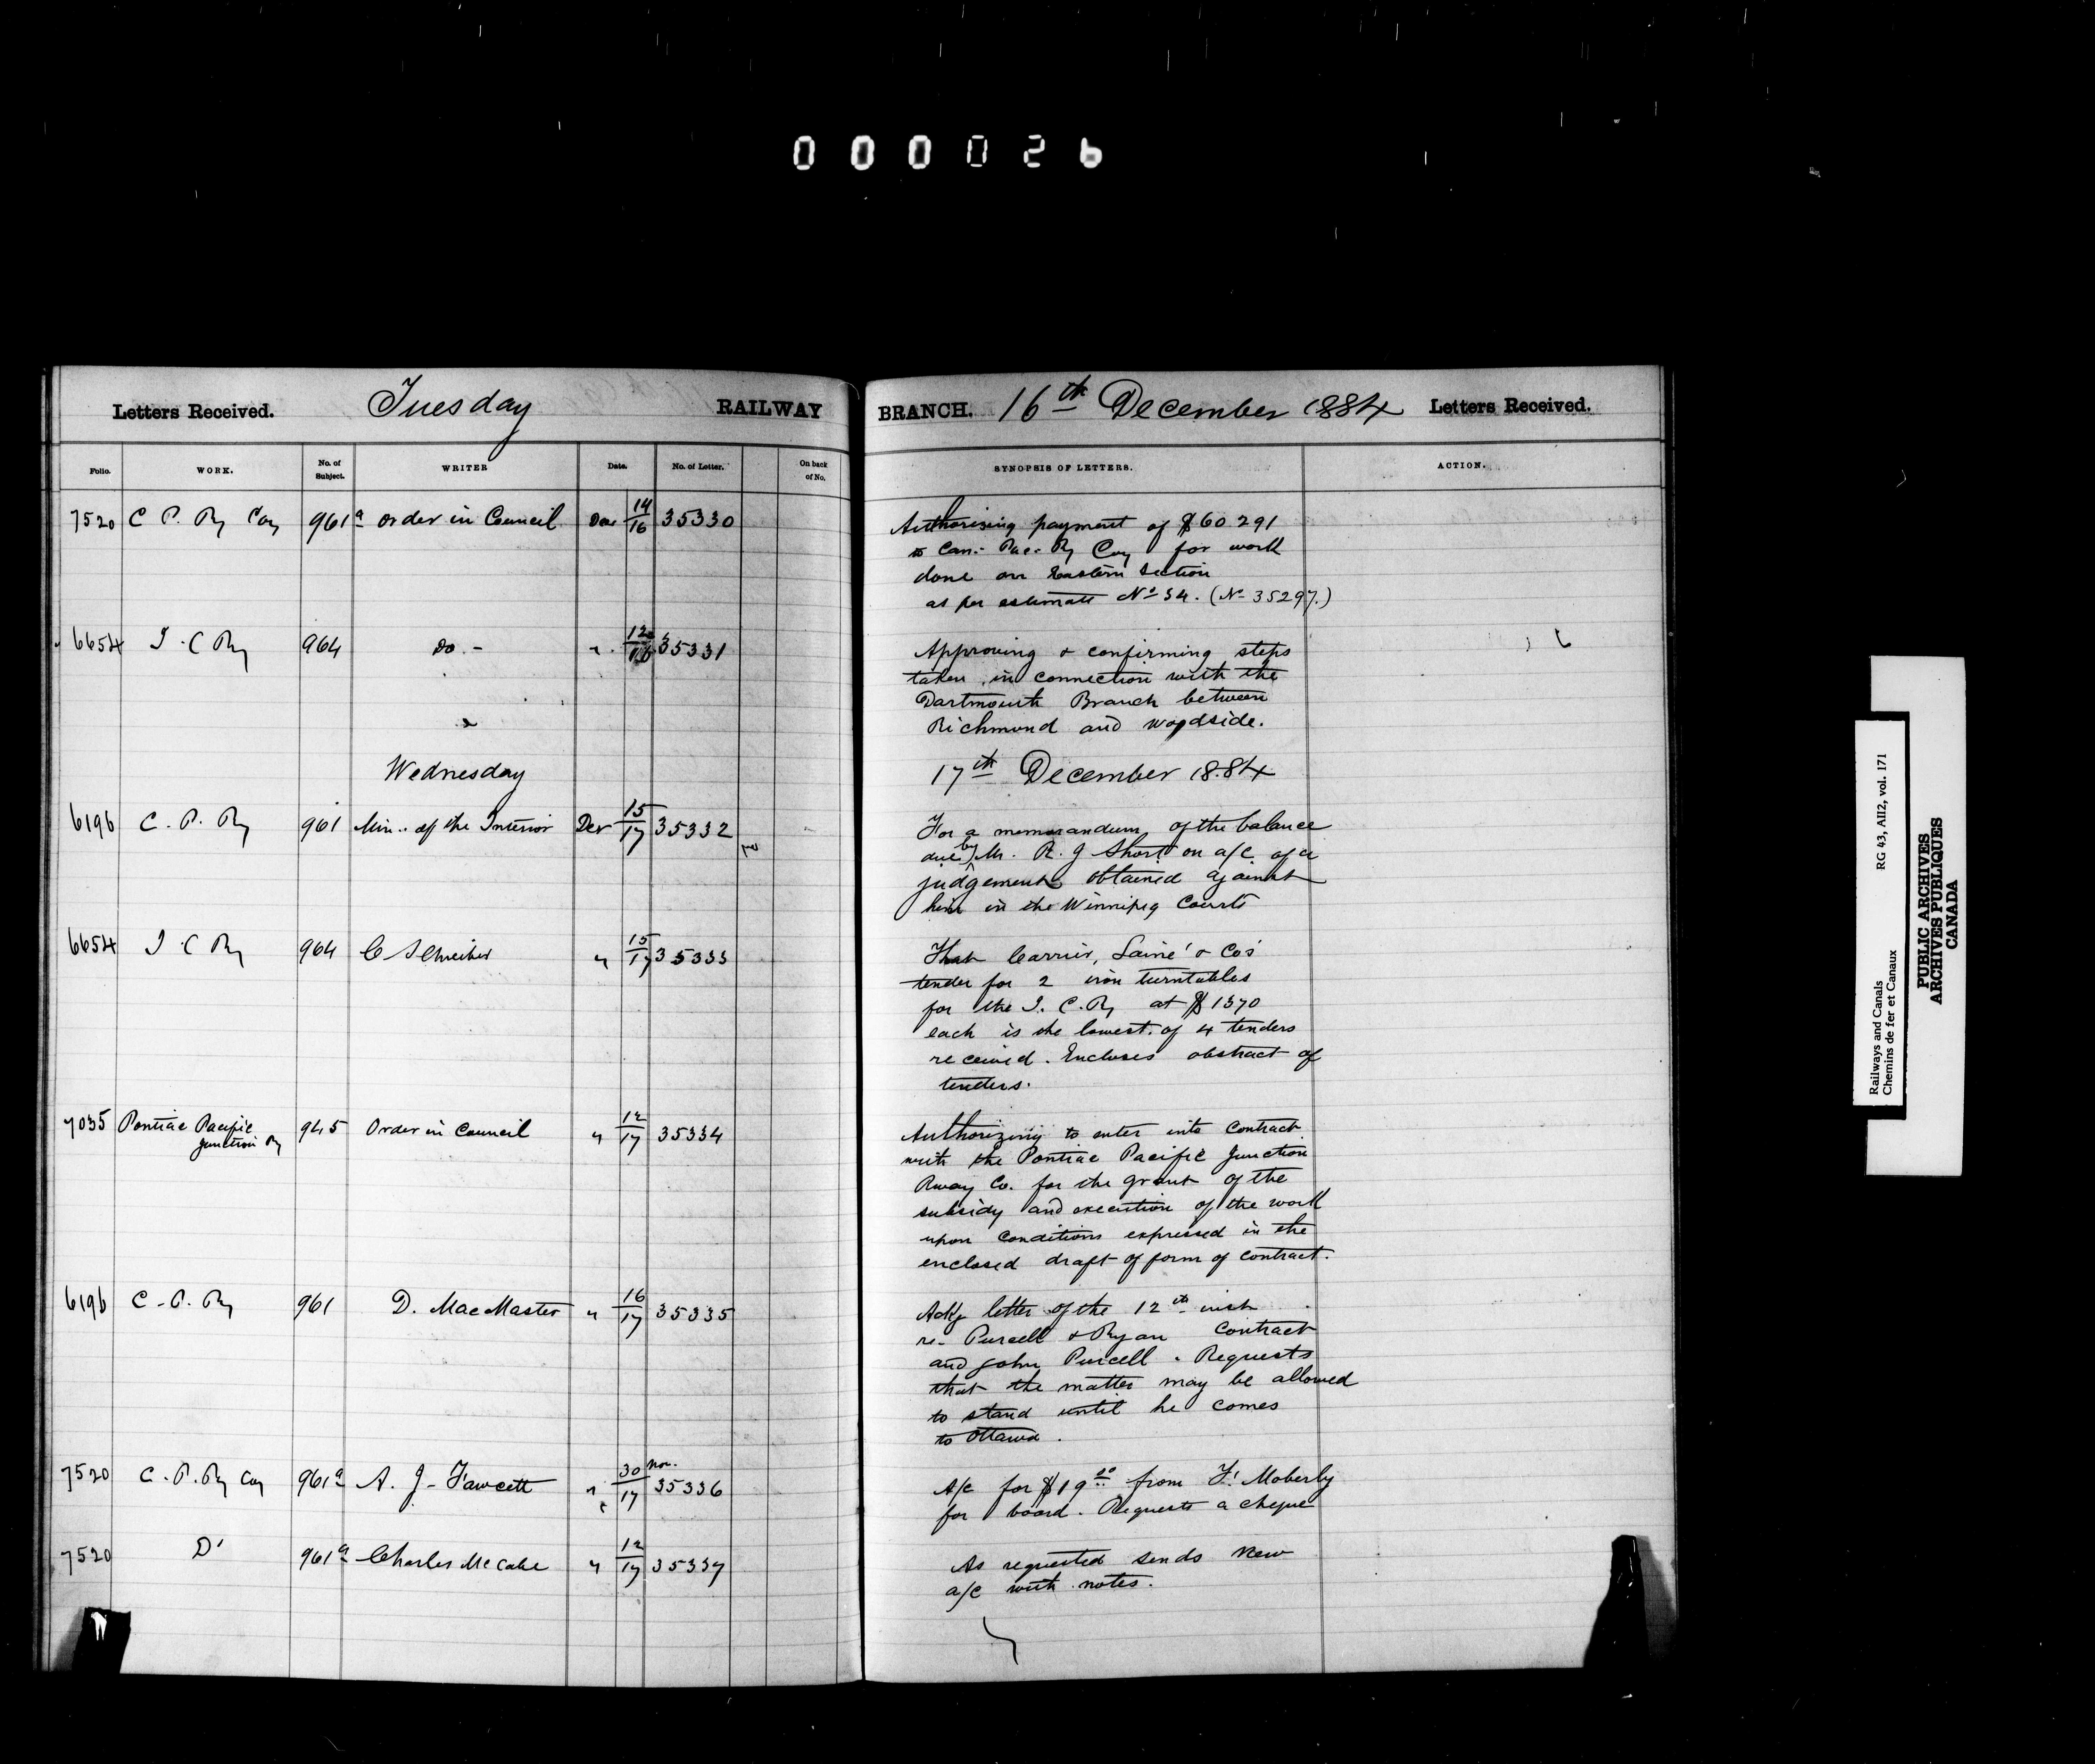 000026
Letters Received. Tuesday RAILWAY BRANCH. 16th December 1884 Letters Received.
Folio. WORK. No. of Subject. WRITER Date. No. of Letter. On back of No. SYNOPSIS OF LETTERS. ACTION.
7520 C P. Ry Coy 961a order in Council Dec 14/16 35330 Authorising payment of $60 291
to Can. Pac. Ry Coy for work
done on Eastern Section
as per estimate No 34. (No 35297.)
6654 I. C Ry 964 Do. - " 12/16 35331 Approving & confirming steps
taken in connection with the
Dartmouth Branch between
Richmond and Woodside.
Wednesday 17th December 1884
6196 C. P. Ry 961 Min. of the Interior Dec 15/17 35332 For a memorandum of the balance
due by Mr. R. J Short on a/c of a
judgement obtained against
him in the Winnipeg Courts
6654 I. C Ry 964 C Schreiber " 15/17 35333 That Carrier, Lainé & Co's
tender for 2 iron turntables
for the I. C. Ry at $1370
each is the lowest of 4 tenders
received. Encloses abstract of
tenders.
7035 Pontiac Pacific Junction Ry 945 Order in Council " 12/17 35334 Authorizing to enter into contract
with the Pontiac Pacific Junction
Rway Co. for the grant of the
subsidy and execution of the work
upon conditions expressed in the
enclosed draft of form of contract.
6196 C. P. Ry 961 D. MacMaster " 16/17 35335 Ackg letter of the 12th inst
re. Purcell & Ryan Contract
and John Purcell. Requests
that the matter may be allowed
to stand until he comes
to Ottawa.
7520 C. P. Ry Coy 961a A. J. Fawcett " 30 Nov./17 35336 A/c for $19 from F. Moberly
for board. Requests a cheque
7520 Do 961a Charles McCabe " 12/17 35337 As requested sends new
a/c with notes.
Railways and Canals RG 43, AII2, vol. 171
Chemins de fer et Canaux
PUBLIC ARCHIVES
ARCHIVES PUBLIQUES
CANADA